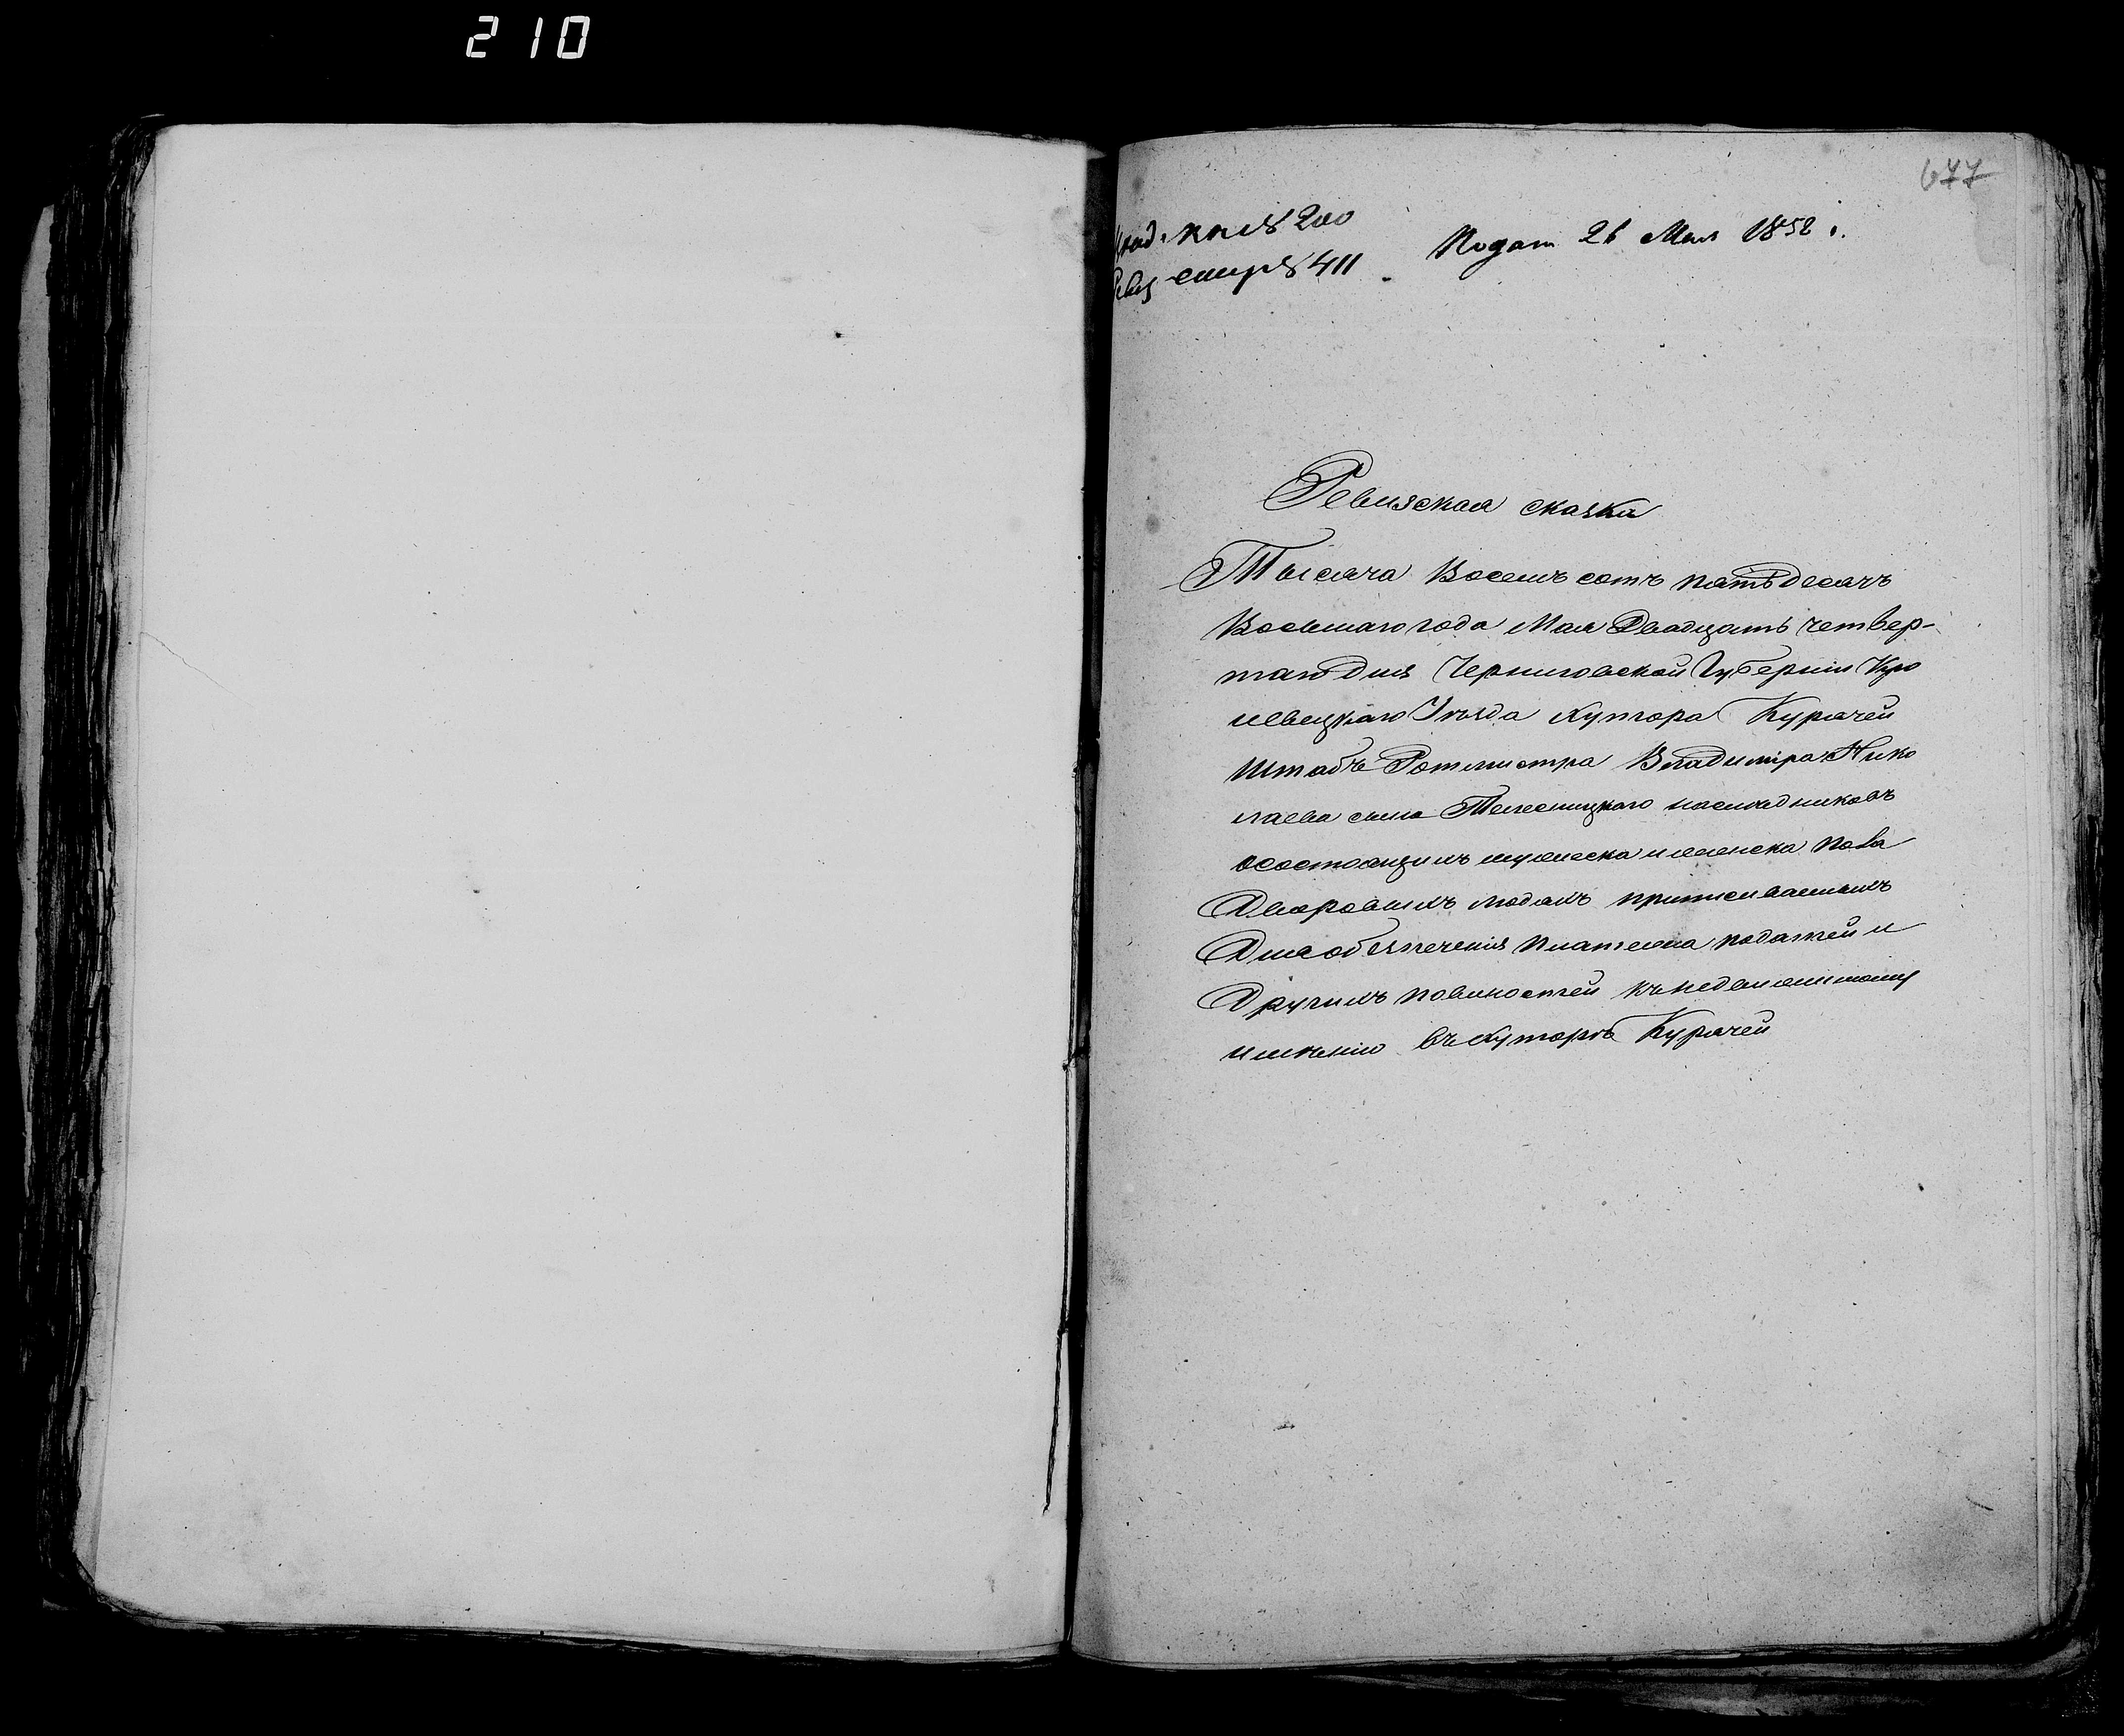 210
677
Клад. кн № 200
Ревиз стир № 411
Подан 26 Мая 1858 г.
Ревизская сказка
Тысяча Восемъ сотъ пятьдесятъ
Восьмаго года Мая Двадцать четвер-
таго Дня Черниговской Губернии Кро
левецкаго Уѣзда хутора Курачей
Штабъ Ротмистра Владимiра Нико
лаева сына Телесницкаго наследниковъ
осостоящихъ мужеска и женска пола
Дворовыхъ людяхъ приписваемыхъ
Для обезпеченiя платежа податей и
Другихъ повиностей къ недвижимому
имѣнiю въ хуторѣ Курачей